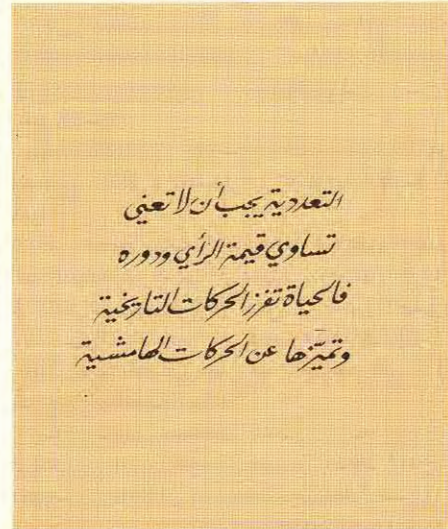 التعددية يجب أن لا تعني
تساوي قيمة الرأي ودوره
فالحياة تفرز الحركات التاريخية
وتميّزها عن الحركات الهامشية